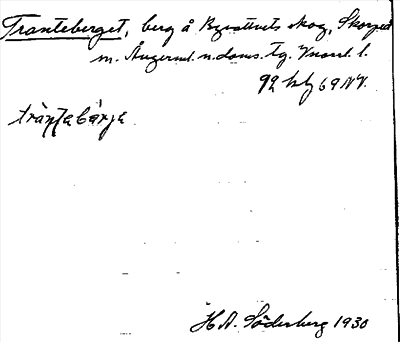 Tranteberget, berg å Bysätters skog, Skorped
sn. Ångerml. n. doms. tg. Vnorrl. l.
92 hbf 69 NV.
träntabärje
H. A. Söderberg 1930